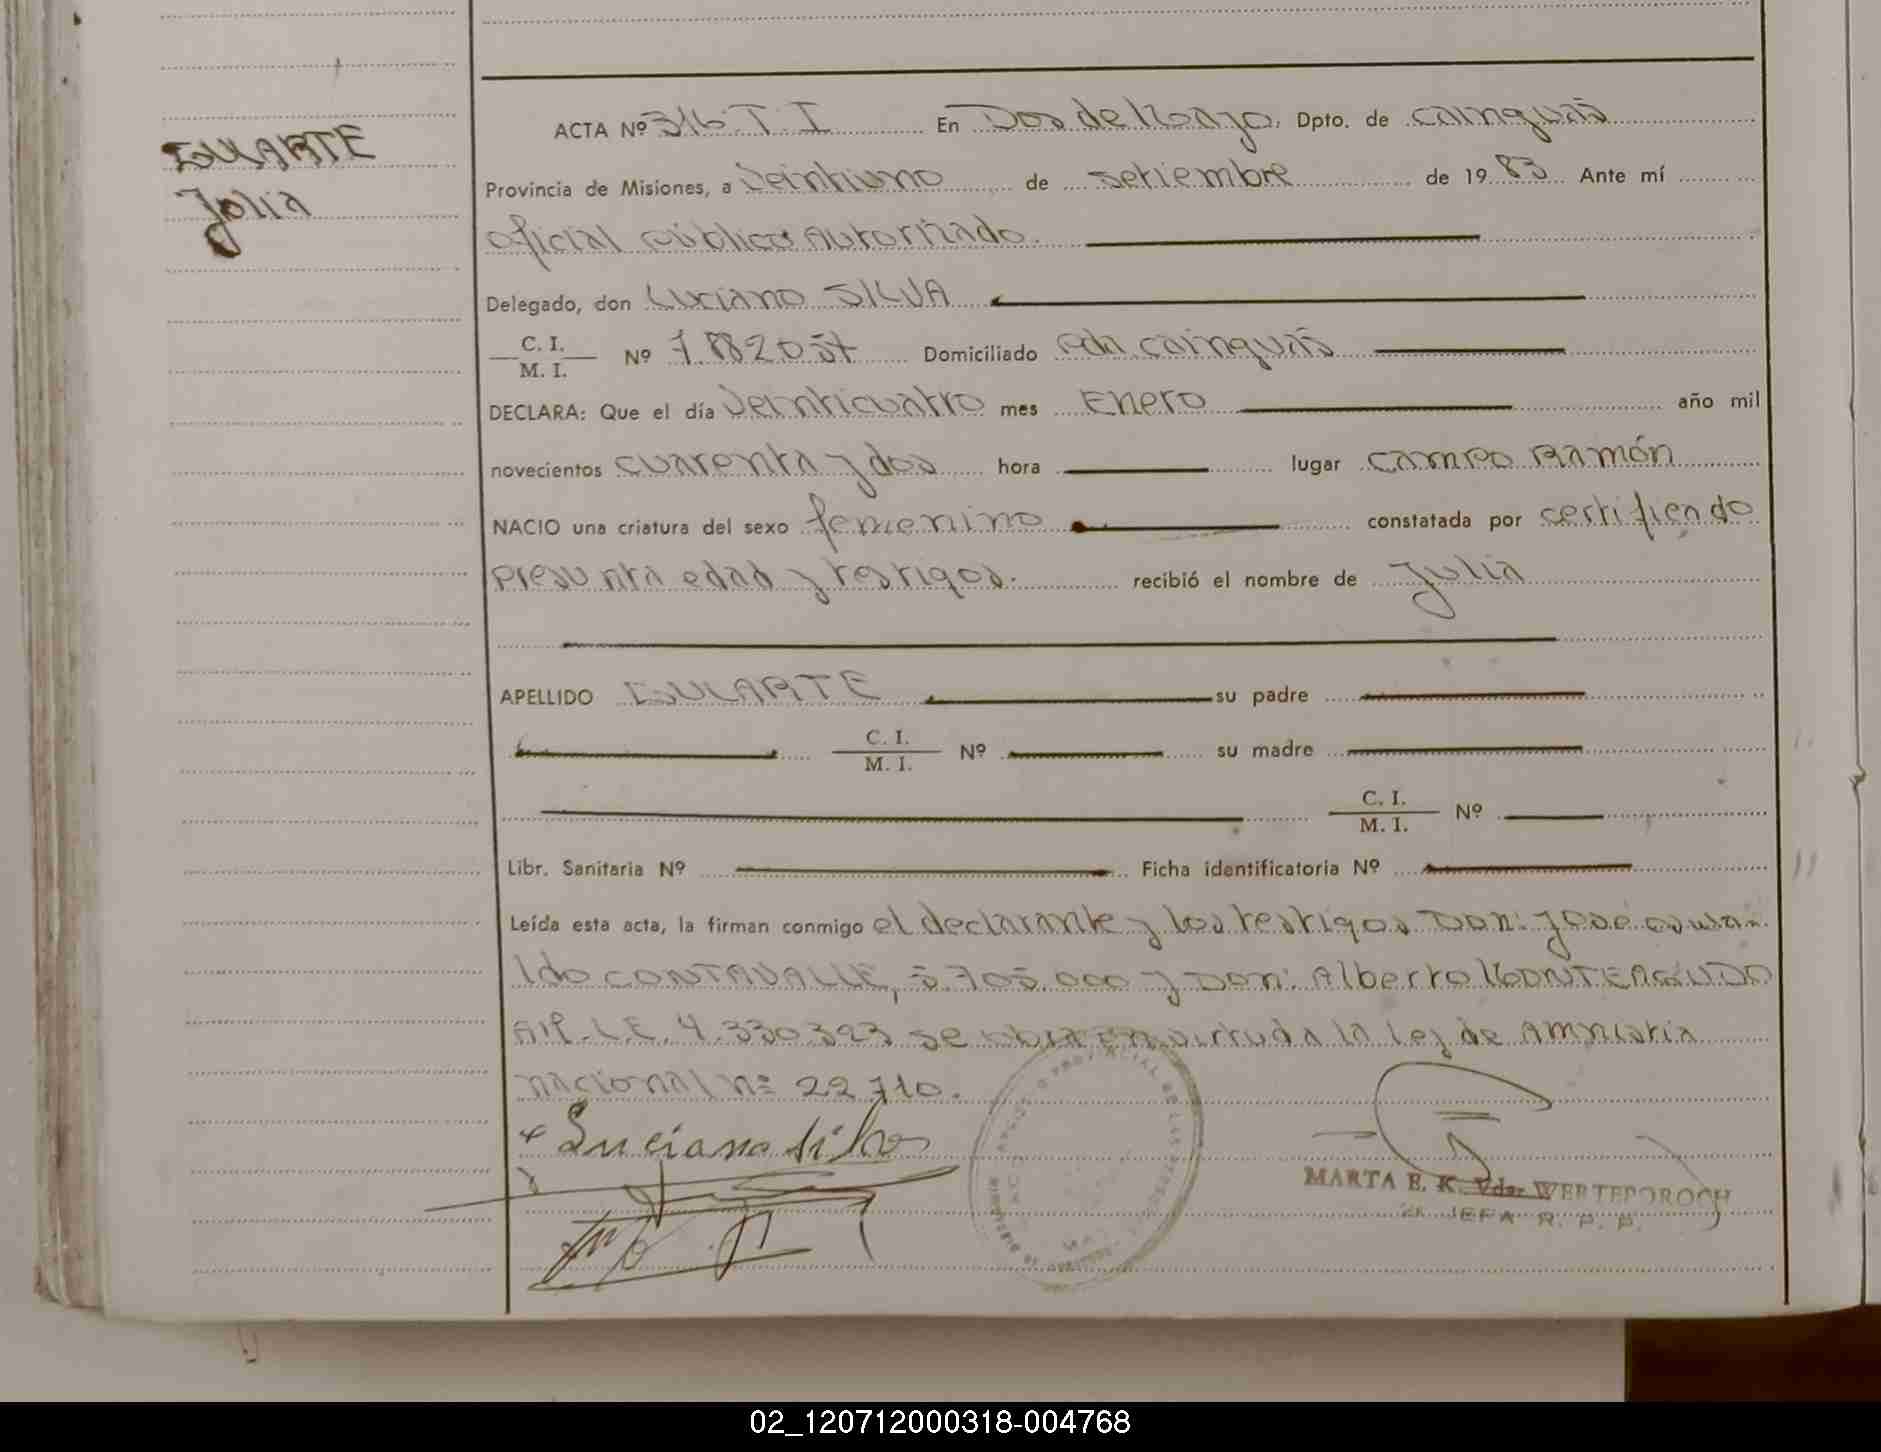 ACTA Nº 316. T. I En Dos de Mayo. Dpto. de Cainguás
GULARTE
Julia
Provincia de Misiones, a Veintiuno de setiembre de 19 83 Ante mí
oficial público Autorizado.
Delegado, don Luciano SILVA
C. I.
M. I. Nº 7.882057 Domiciliado Pdn. Cainguás
DECLARA: Que el día Veinticuatro mes Enero año mil
novecientos cuarenta y dos hora lugar campo Ramón
NACIO una criatura del sexo femenino constatada por certifiendo
presunta edad y testigos. recibió el nombre de Julia
APELLIDO GULARTE su padre
C. I.
M. I. Nº su madre
C. I.
M. I. Nº
Libr. Sanitaria Nº Ficha identificatoria Nº
Leída esta acta, la firman conmigo el declarante y los testigos Don: José oswal
ldo CONTAVALLE, 5.705.000 y Don: Alberto MONTEAGUDO
L.E. 4.330.323 se en virtud a la ley de Amnistia
nacional nº 22.710.
Luciano Silva
MARTA E. K. Vda. WERTEPOROCH
JEFA R. P. P.
02_120712000318-004768